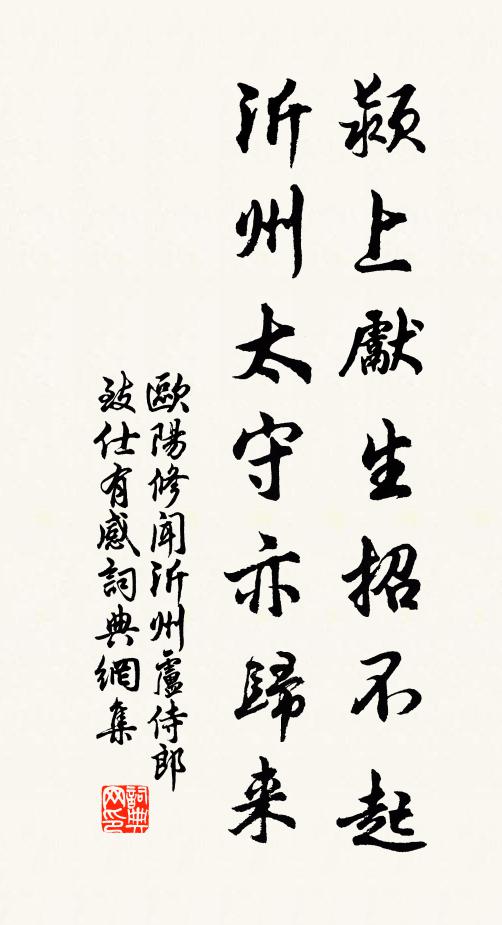 潁上獻生招不起
沂州太守亦歸来
歐陽修聞沂州盧侍郎
致仕有感詞典網集
詞典
网印